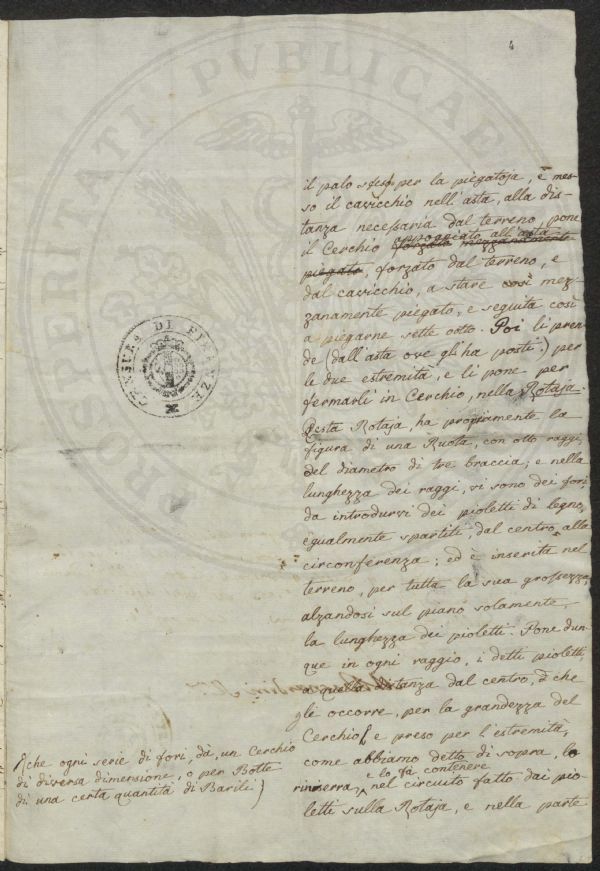 4
il palo steso per la piegatoja, e mes-
so il cavicchio nell'asta, alla dis-
tanza necessaria dal terreno, pone
il Cerchio appoggiato all'asta
forzato mezzanamente
piegato, forzato dal terreno, e
dal cavicchio, a stare così mez-
zanamente piegato, e seguita così
a piegarne sette otto. Poi li pren-
de (dall'asta ove gli ha posti) per
le due estremità, e li pone per
fermarli in Cerchio, nella Rotaja.
Questa Rotaja, ha propriamente la
figura di una Ruota, con otto raggi,
del diametro di tre braccia; e nella
lunghezza dei raggi, vi sono dei fori
da introdursi dei pioletti di legno,
egualmente spartiti, dal centro, alla
circonferenza; ed è inserita nel
terreno, per tutta la sua grossezza,
alzandosi sul piano solamente,
la lunghezza dei pioletti. Pone dun-
que in ogni raggio, i detti pioletti,
a quella distanza dal centro, che
gli occorre, per la grandezza del
Cerchio, e preso per l'estremità,
come abbiamo detto di sopra, lo
rinserra, e lo fa contenere nel circuito fatto dai pio-
letti sulla Rotaja, e nella parte
(che ogni serie di fori, dà, un Cerchio
di diversa dimensione, o per Botte
di una certa quantità di Barili)
CENSURA DI FINANZE
PUBLICAE